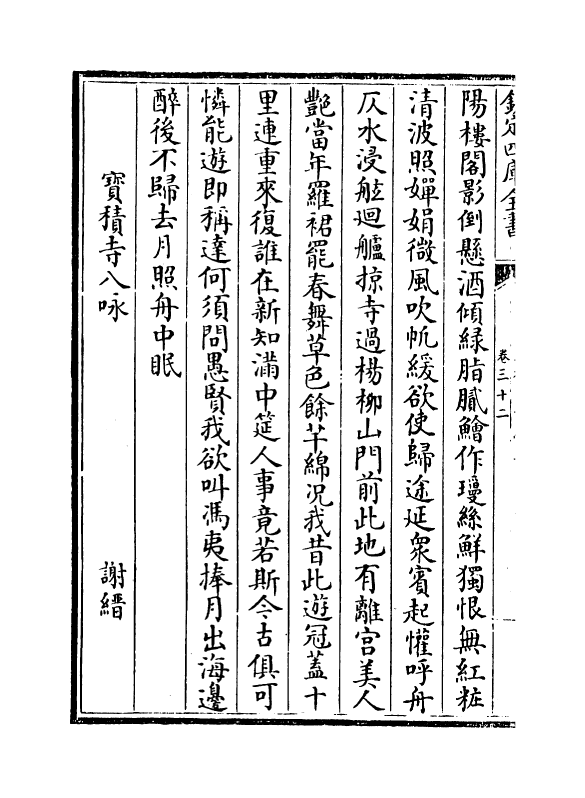 欽定四庫全書
卷三十二
陽樓閣影倒懸酒傾緑脂膩鱠作瓊絲鮮獨恨無紅粧
清波照嬋娟微風吹帆緩欲使歸途延衆賓起懽呼舟
仄水浸舷迴艫掠寺過楊柳山門前此地有離宫美人
艷當年羅裙罷春舞草色餘芊綿況我昔此遊冠蓋十
里連重來復誰在新知滿中筵人事竟若斯今古俱可
憐能遊即稱達何須問愚賢我欲叫馮夷捧月出海邊
醉後不歸去月照舟中眠
寶積寺八咏 謝縉